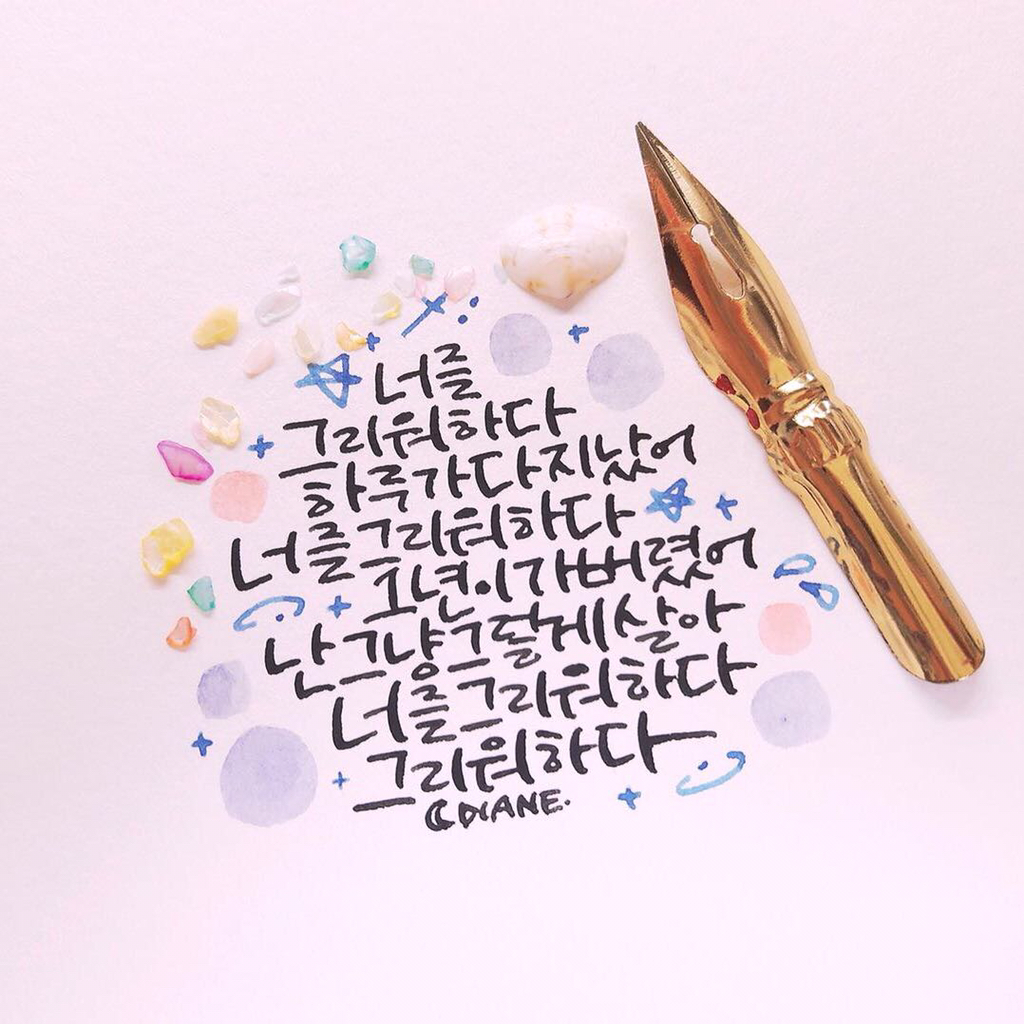 너를
그리워하다
하루가 다 지났어
너를 그리워하다
1년이 가버렸어
난 그냥 그렇게 살아
너를 그리워하다
그리워하다
DIANE.